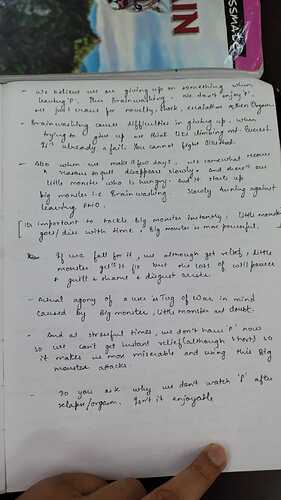 CLASSMA
- We believe we are giving up on something when
leaving 'P'. This Brainwashing. We don't enjoy 'P',
we just crave for novelty, shock, escalation often Orgasm.
- Brainwashing causes difficulties in giving up. When
trying to give up we think its like climbing mt. Everest.
It's already a fail. You cannot fight Aftermath.
- Also when we make it few days, we somewhat recover
& reasons to quit disappears slowly. And there's our
little monster who is hungry. And it starts up
big monster i.e Brainwashing slowly turning against
leaving PMO.
[Its important to tackle Big monster instantly. Little monster
goes/dies with time. Big monster is more powerful.
If we fall for it, we although get relief, little
monster gets its fix but the loss of will power
& guilt & shame & disgust
- Actual agony of a user is Tug of War in mind
caused by Big monster, little monster and doubt.
- And at stressful times, we don't have 'P' now
so we can't get instant relief (although short) so
it makes us more miserable and using this Big
monster attacks.
- So you ask why we don't watch 'P' after
relapse/orgasm. Isn't it enjoyable